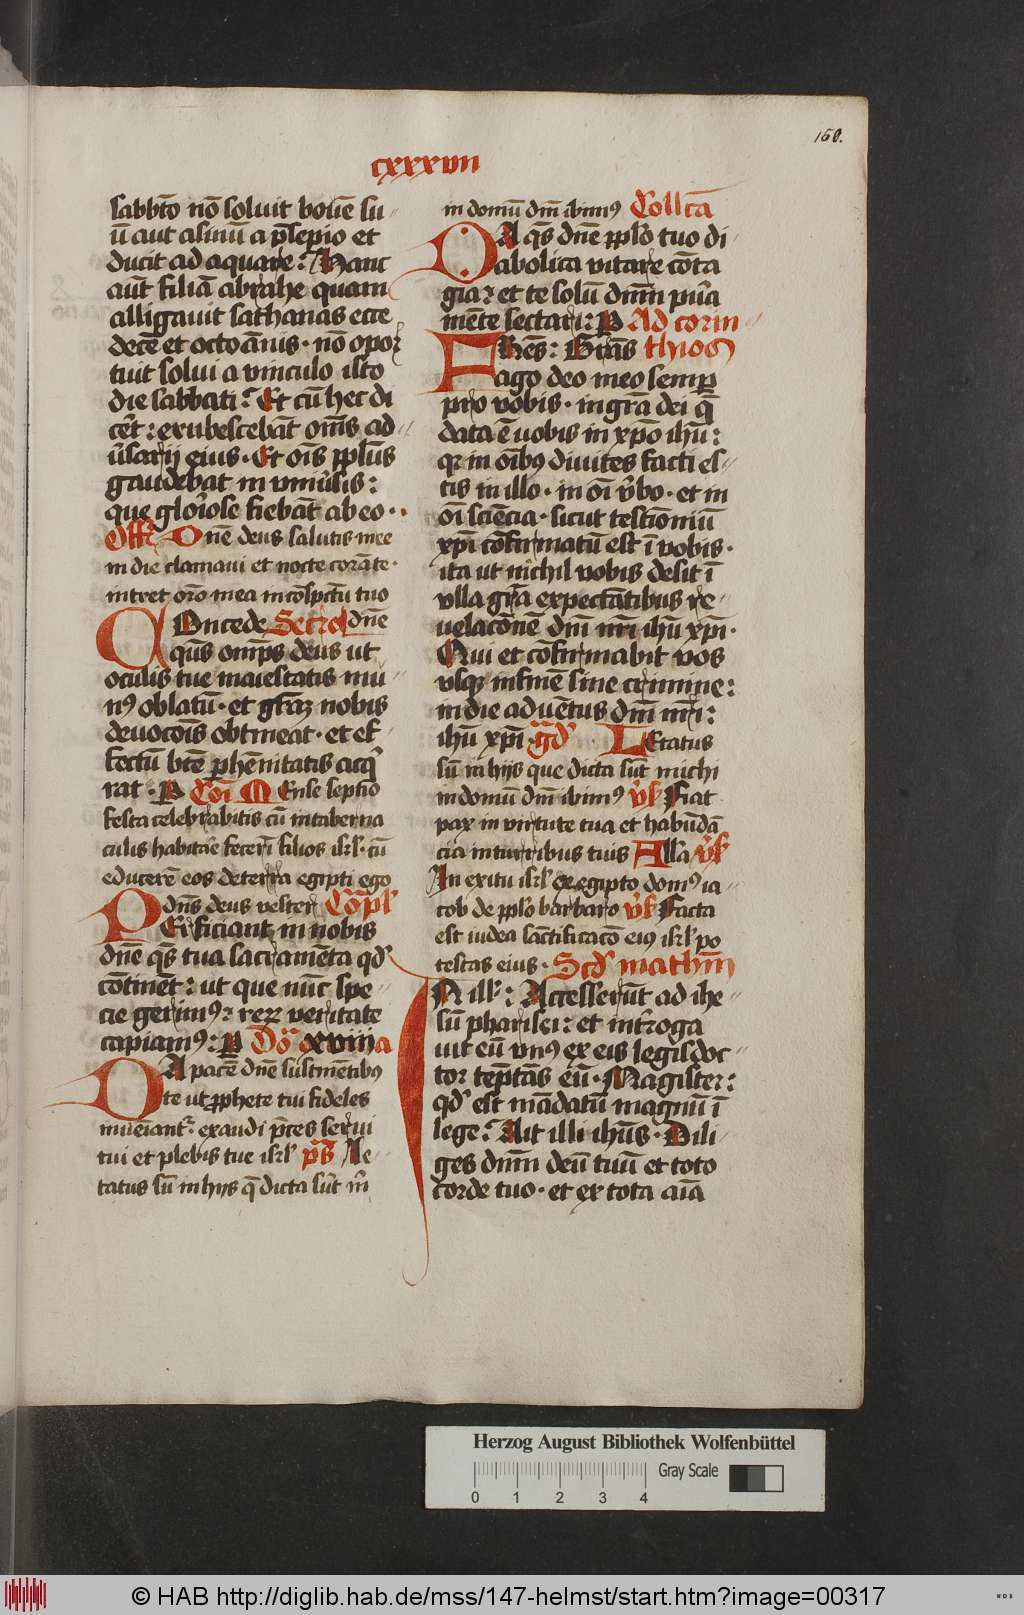 160.
cxxxvıı
sabbt̄o nō soluit bouē su
ū aut asinū a p̄sepio et
ducit ad aquare: Hanc
aūt filiā abrahe quam
alligauit sathanas ecce
decē et octo ānis · nō opor
tuit solui a vinculo isto
die sabbati: Et cū hec di
cēt: erubescebāt om̄s ad
ūsarij eius · Et oīs pplūs
gaudebat in vniūsis:
que glōiose fiebāt ab eo ·
Offr̄ Dnē deus salutis mee
in die clamaui et nocte corā te ·
intret or̄o mea in cōspectu tuo
COncede Secret dnē
qūs omp̄s deus ut
oculis tue maiestatis mu
nꝰ oblatū · et grāꝫ nobis
deuocōis obtineat · et ef
fectū btē phēnitatis acq̄
rat · P Cōi MEnse septīo
festa celebrabitis cū in taberna
culis habitāe fecerī filios isrl̄ · cū
educerē eos de terra egipti ego
dn̄s deus vester Cōpl̄
PErficiant in nobis
dnē qs̄ tua sacramēta qd̓
cōtinēt: ut que nūc spe
cie gerimꝰ: reꝝ veritate
capiamꝰ: P Dō xviija
DA pacē dnē sustinētibꝰ
te ut pphete tui fideles
inueīant̄: exaudi p̄ces serui
tui et plebis tue isrl̄ p̄s Le
tatus sū in hijs q̄ dicta sūt m̄
in domū dm̄ ibimꝰ Collc̄a
DA qs̄ dnē pplo tuo di
abolica vitare cōta
gia: et te solū dn̄m pūa
mēte sectari: P Ad corin
FRēs: Grās thios
ago deo meo semp
pro vobis · in grā dei q̄
data ē uobis in xp̄o ihū:
qꝛ in oībꝰ diuites facti es
tis in illo · in oī ūbo · et in
oī sciēcia · sicut testīoniū
xp̄i cōfirmatū est ī vobis ·
ita ut nichil vobis desit ī
vlla grā expectātibus re
uelacōnē dm̄ nr̄i ihū xp̄i ·
Qui et cōfirmabit vos
vsqꝫ in finē sine crimine:
in die aduētus dm̄ nr̄i:
ihū xp̄i · gd̄ LEtatus
sū in hijs que dicta sūt michi
in domū dm̄ ibimꝰ v̄s Fiat
pax in virtute tua et habūdā
cia in turribus tuis All̄a v̄s
In exitu isrl̄ de egipto domꝰ ia
cob de pplo barbaro v̄s Facta
est iudea sāctificacō eiꝰ isrl̄ po
testas eius · Scd̄ mathm̄
IN ill̄: Accesserūt ad ihe
sū pharisei: et introga
uit eū vnꝰ ex eis legis doc
tor tēptās eū · Magister:
qd̓ est mādatū magnū ī
lege: Ait illi ihūs · Dili
ges dn̄m deū tuū et toto
corde tuo · et ex tota aīa
Herzog August Bibliothek Wolfenbüttel
Gray Scale
0 1 2 3 4
© HAB http://diglib.hab.de/mss/147-helmst/start.htm?image=00317
WDB